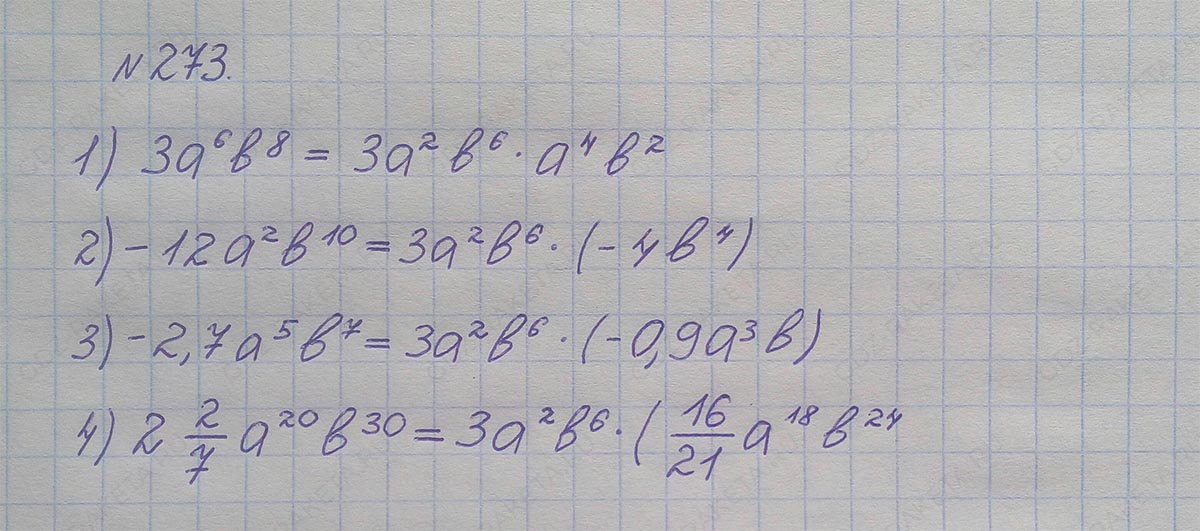 № 273.
1) 3a⁶b⁸ = 3a²b⁶ · a⁴b²
2) -12a²b¹⁰ = 3a²b⁶ · (-4b⁴)
3) -2,7a⁵b⁷ = 3a²b⁶ · (-0,9a³b)
4) 2 2/7 a²⁰b³⁰ = 3a²b⁶ · (16/21 a¹⁸b²⁴